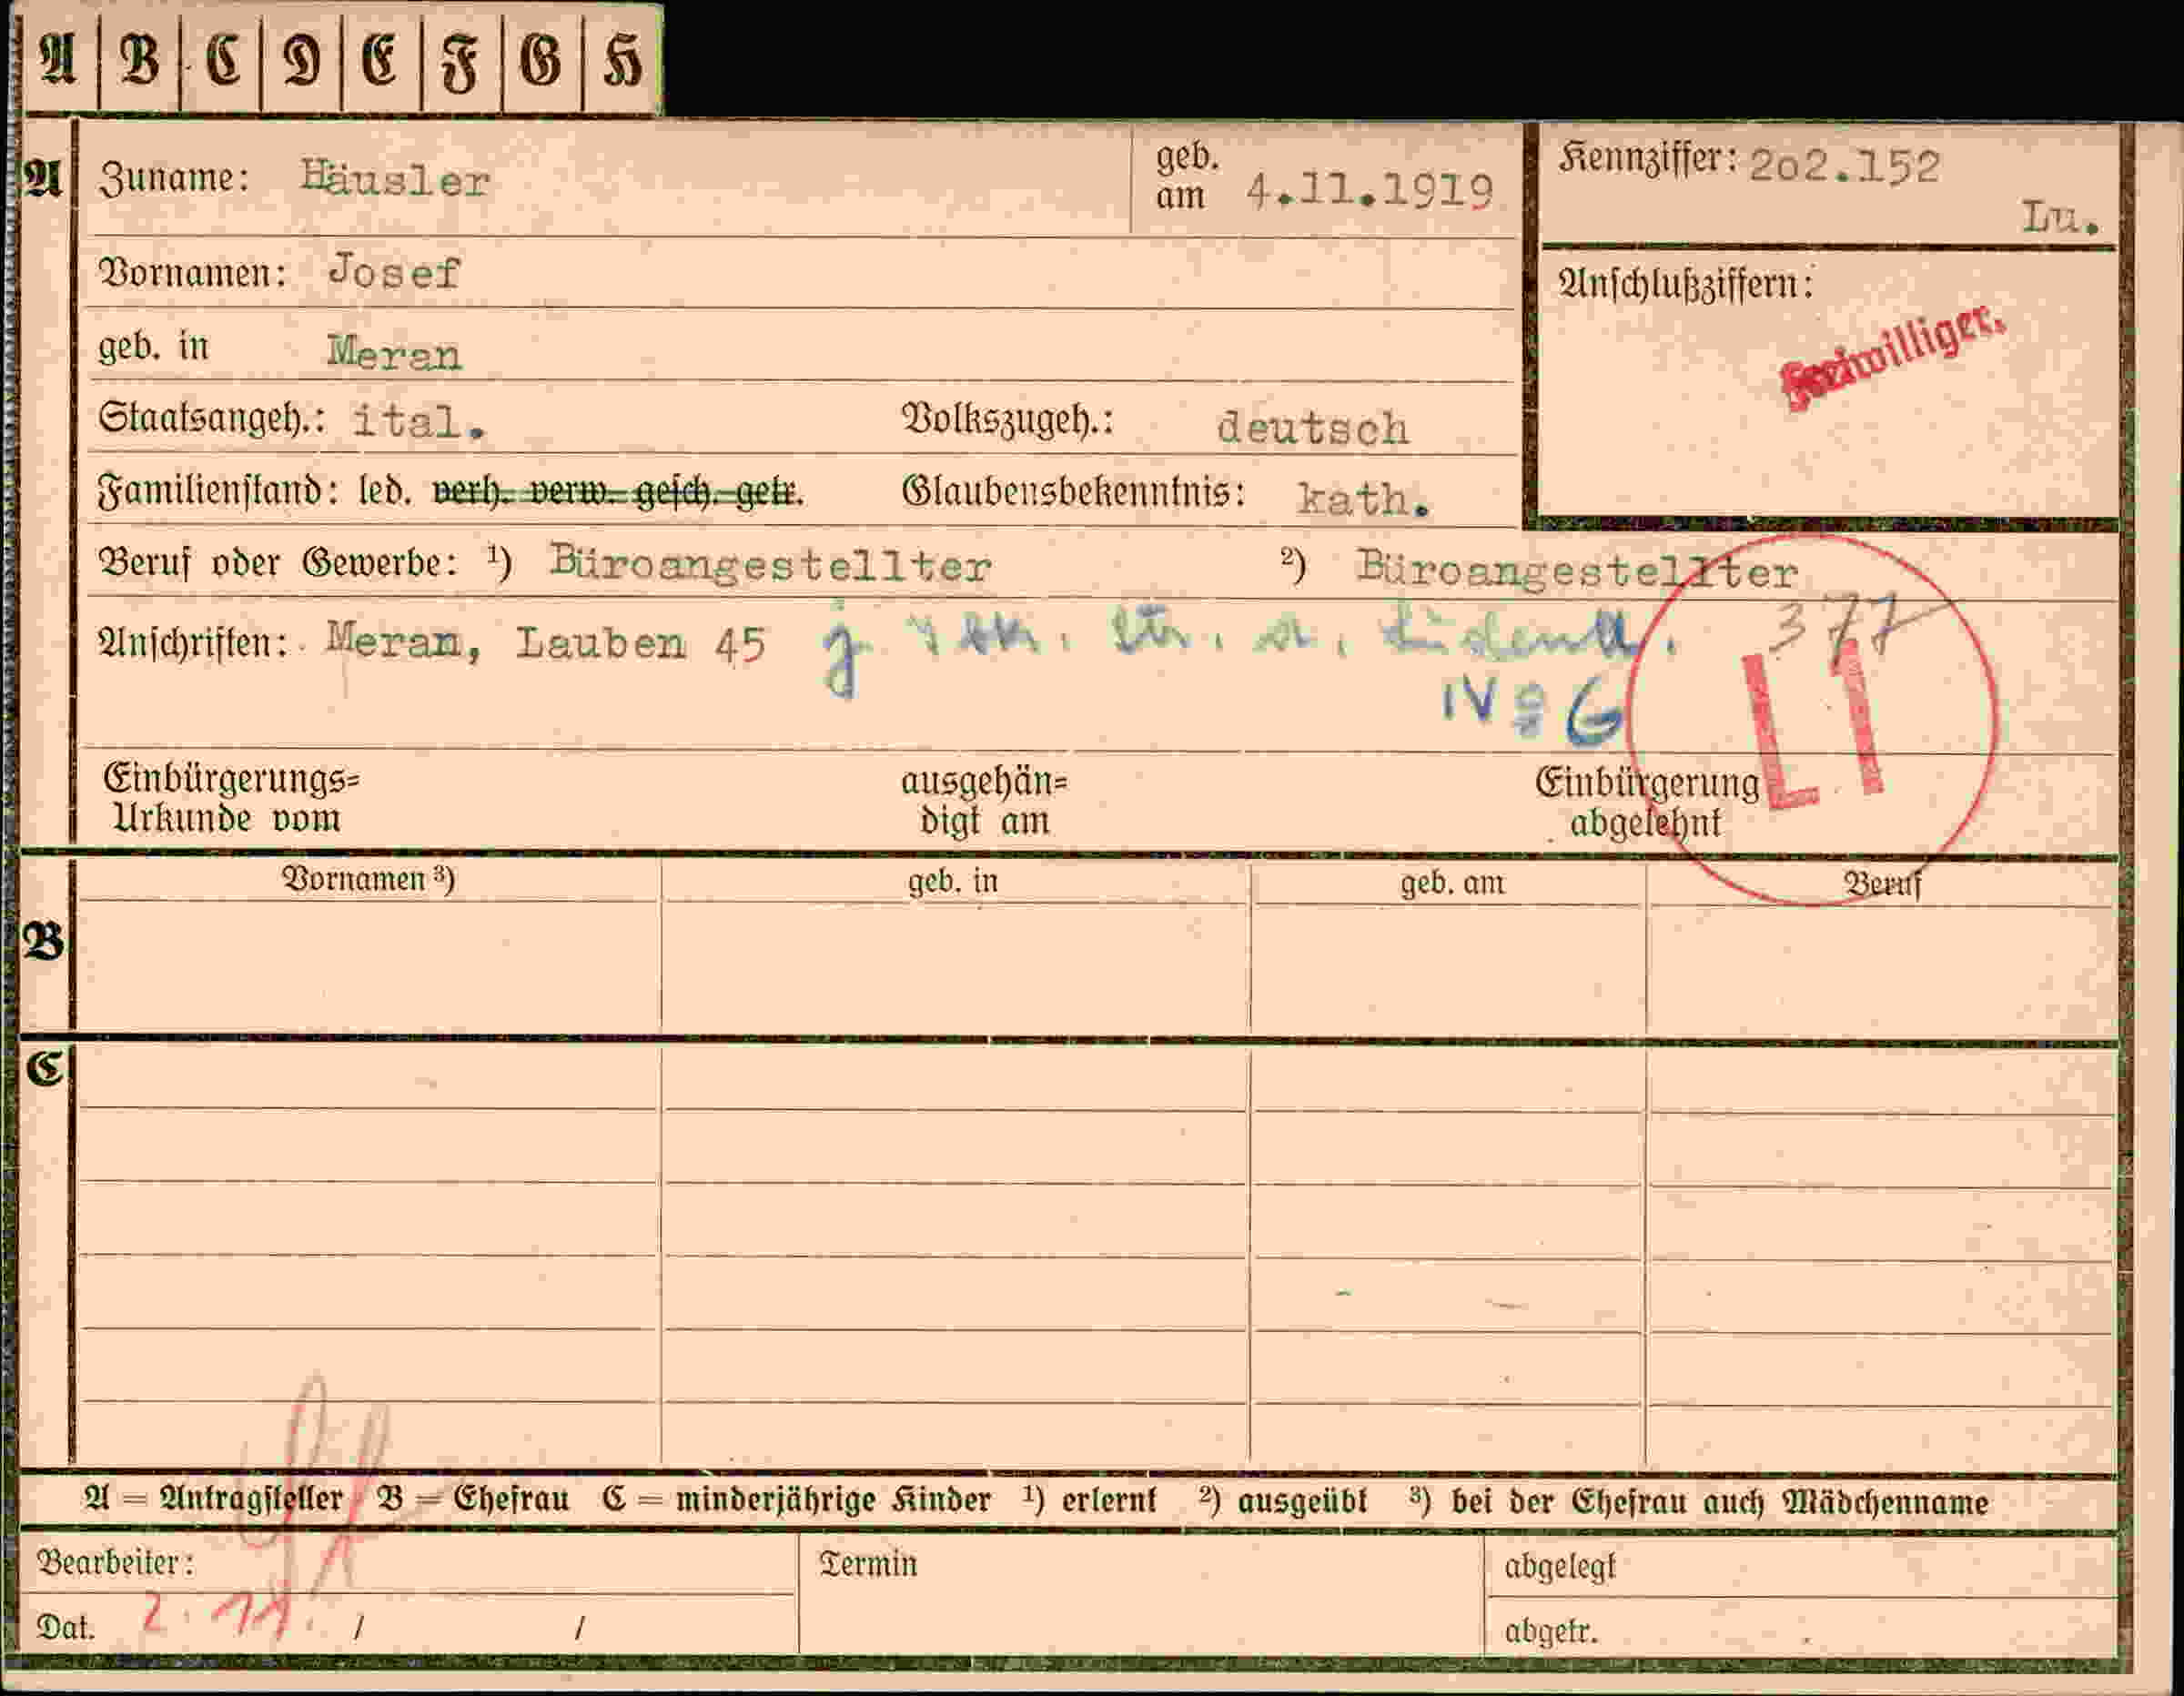 A B C D E F G H
A Zuname: Häusler geb. am 4.11.1919 Kennziffer: 2o2.152
Lu.
Vornamen: Josef
Anschlußziffern:
Freiwilliger.
geb. in Meran
Staatsangeh.: ital. Volkszugeh.: deutsch
Familienstand: led. verh. verw. gesch. getr. Glaubensbekenntnis: kath.
Beruf oder Gewerbe: ¹) Büroangestellter ²) Büroangestellter
Anschriften: Meran, Lauben 45
377
IV 6
L1
Einbürgerungs= ausgehän= Einbürgerung
Urkunde vom digt am abgelehnt
Vornamen ³) geb. in geb. am Beruf
B
C
A = Antragsteller B = Ehefrau C = minderjährige Kinder ¹) erlernt ²) ausgeübt ³) bei der Ehefrau auch Mädchenname
Bearbeiter: Termin abgelegt
Dat. 2. 11. / / abgetr.